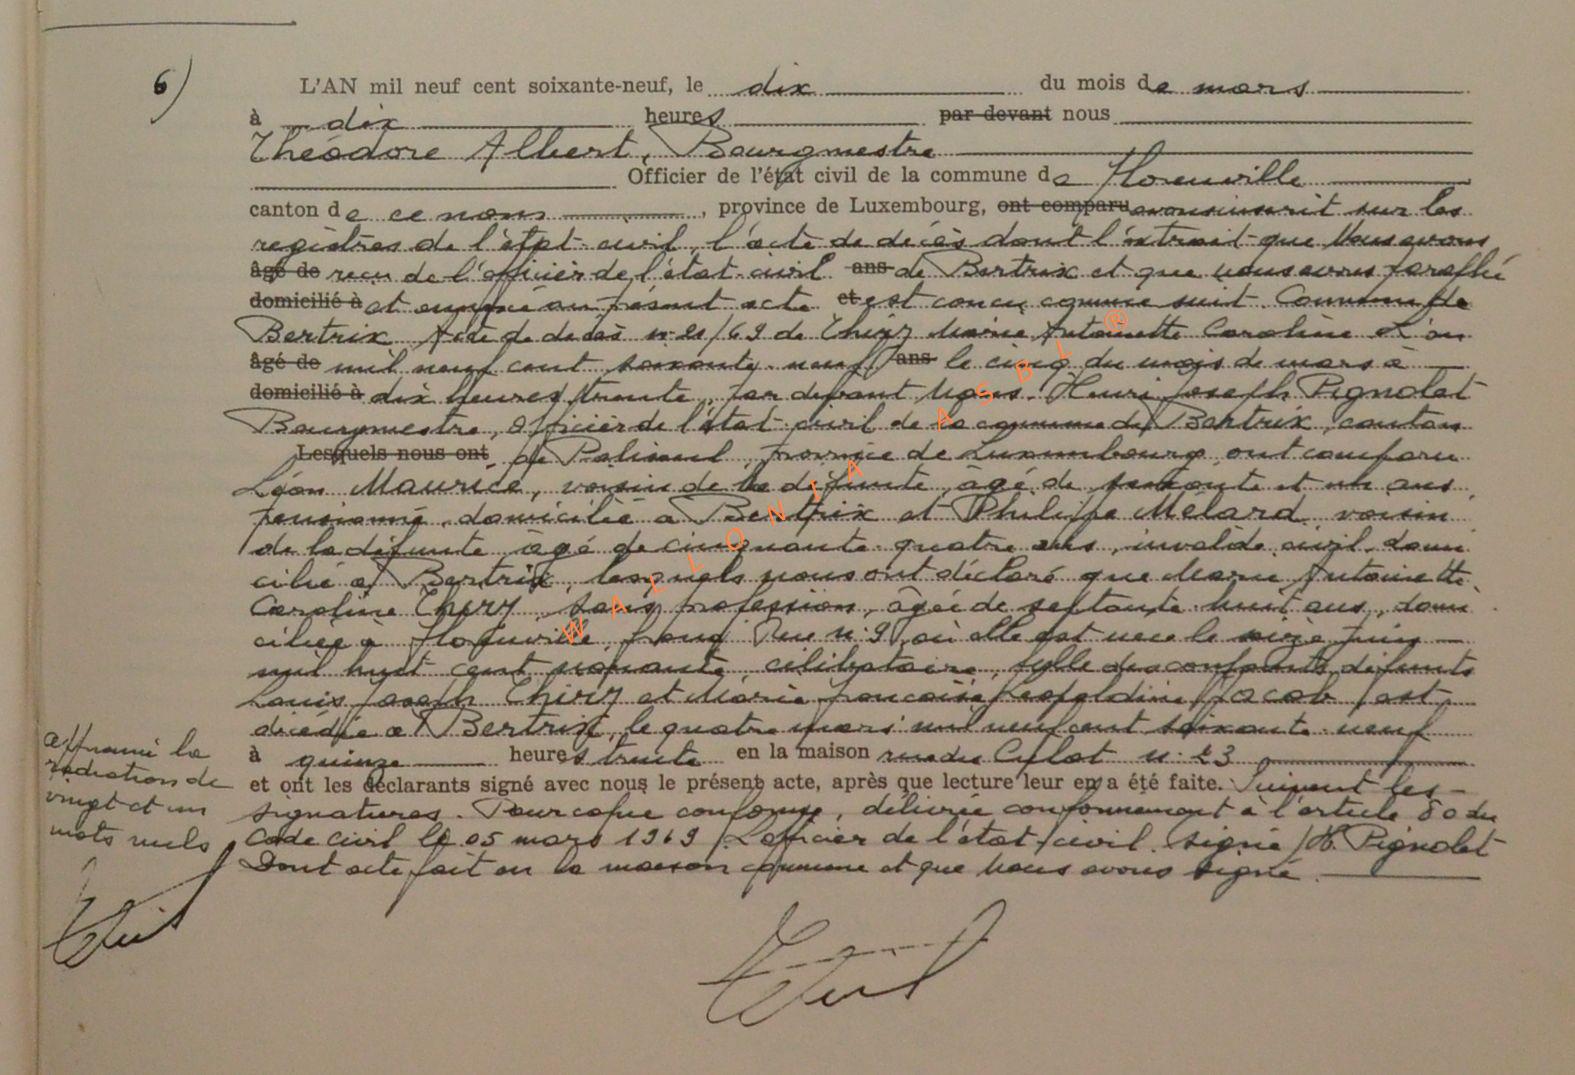 6)
L'AN mil neuf cent soixante-neuf, le dix du mois de mars
à dix heures par devant nous
Théodore Albert, Bourgmestre
Officier de l'état civil de la commune de Florenville
canton de ce nom, province de Luxembourg, ont comparu avons inscrit sur les
registres de l'état-civil, l'acte de décès dont l'extrait que Nous avons
âgé de reçu de l'officier de l'état-civil ans de Bertrix et que nous avons paraphé
domicilié à et annexé au présent acte et est conçu comme suit. Commune de
Bertrix Acte de décès n° 21/69 de Thiry Marie Antoinette Caroline L'an
âgé de mil neuf cent soixante-neuf ans le cinq du mois de mars à
domicilié à dix heures trente, par devant Nous. Henri Joseph Pignolet
Bourgmestre, Officier de l'état-civil de la commune de Bertrix, canton
Lesquels nous ont de Paliseul, province de Luxembourg, ont comparu
Léon Maurice, voisin de la défunte, âgé de soixante et un ans
pensionné, domicilié à Bertrix et Philippe Mélard, voisin
de la défunte, âgé de cinquante-quatre ans, invalide civil, domi
cilié à Bertrix, lesquels nous ont déclaré que Marie Antoinette
Caroline Thiry, sans profession, âgée de septante-huit ans, domi
ciliée à Florenville, Rue n° 9, où elle est née le seize juin
mil huit cent nonante, célibataire, fille des conjoints défunts
Louis Joseph Thiry et Marie Françoise Léopoldine Jacob, est
décédée à Bertrix, le quatre mars mil neuf cent soixante-neuf
à quinze heures trente en la maison rue du Culot n° 23
et ont les déclarants signé avec nous le présent acte, après que lecture leur en a été faite. Suivent les
signatures. Pour copie conforme, délivrée conformément à l'article 80 du
Code civil le 05 mars 1969 L'officier de l'état-civil. signé H. Pignolet
Dont acte fait en la maison commune et que Nous avons signé.
approuvé la
radiation de
vingt et un
mots nuls
WALLONIA ASBL ®